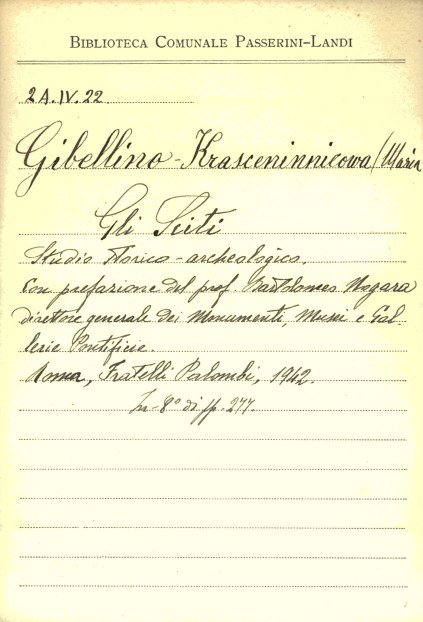 BIBLIOTECA COMUNALE PASSERINI-LANDI
2A.IV.22
Gibellino-Krasceninnicowa (Maria
Gli Sciti
Studio storico-archeologico.
Con prefazione del prof. Bartolomeo Nogara
direttore generale dei Monumenti, Musei e Gal-
lerie Pontificie.
Roma, Fratelli Palombi, 1942.
In-8° di pp. 277.